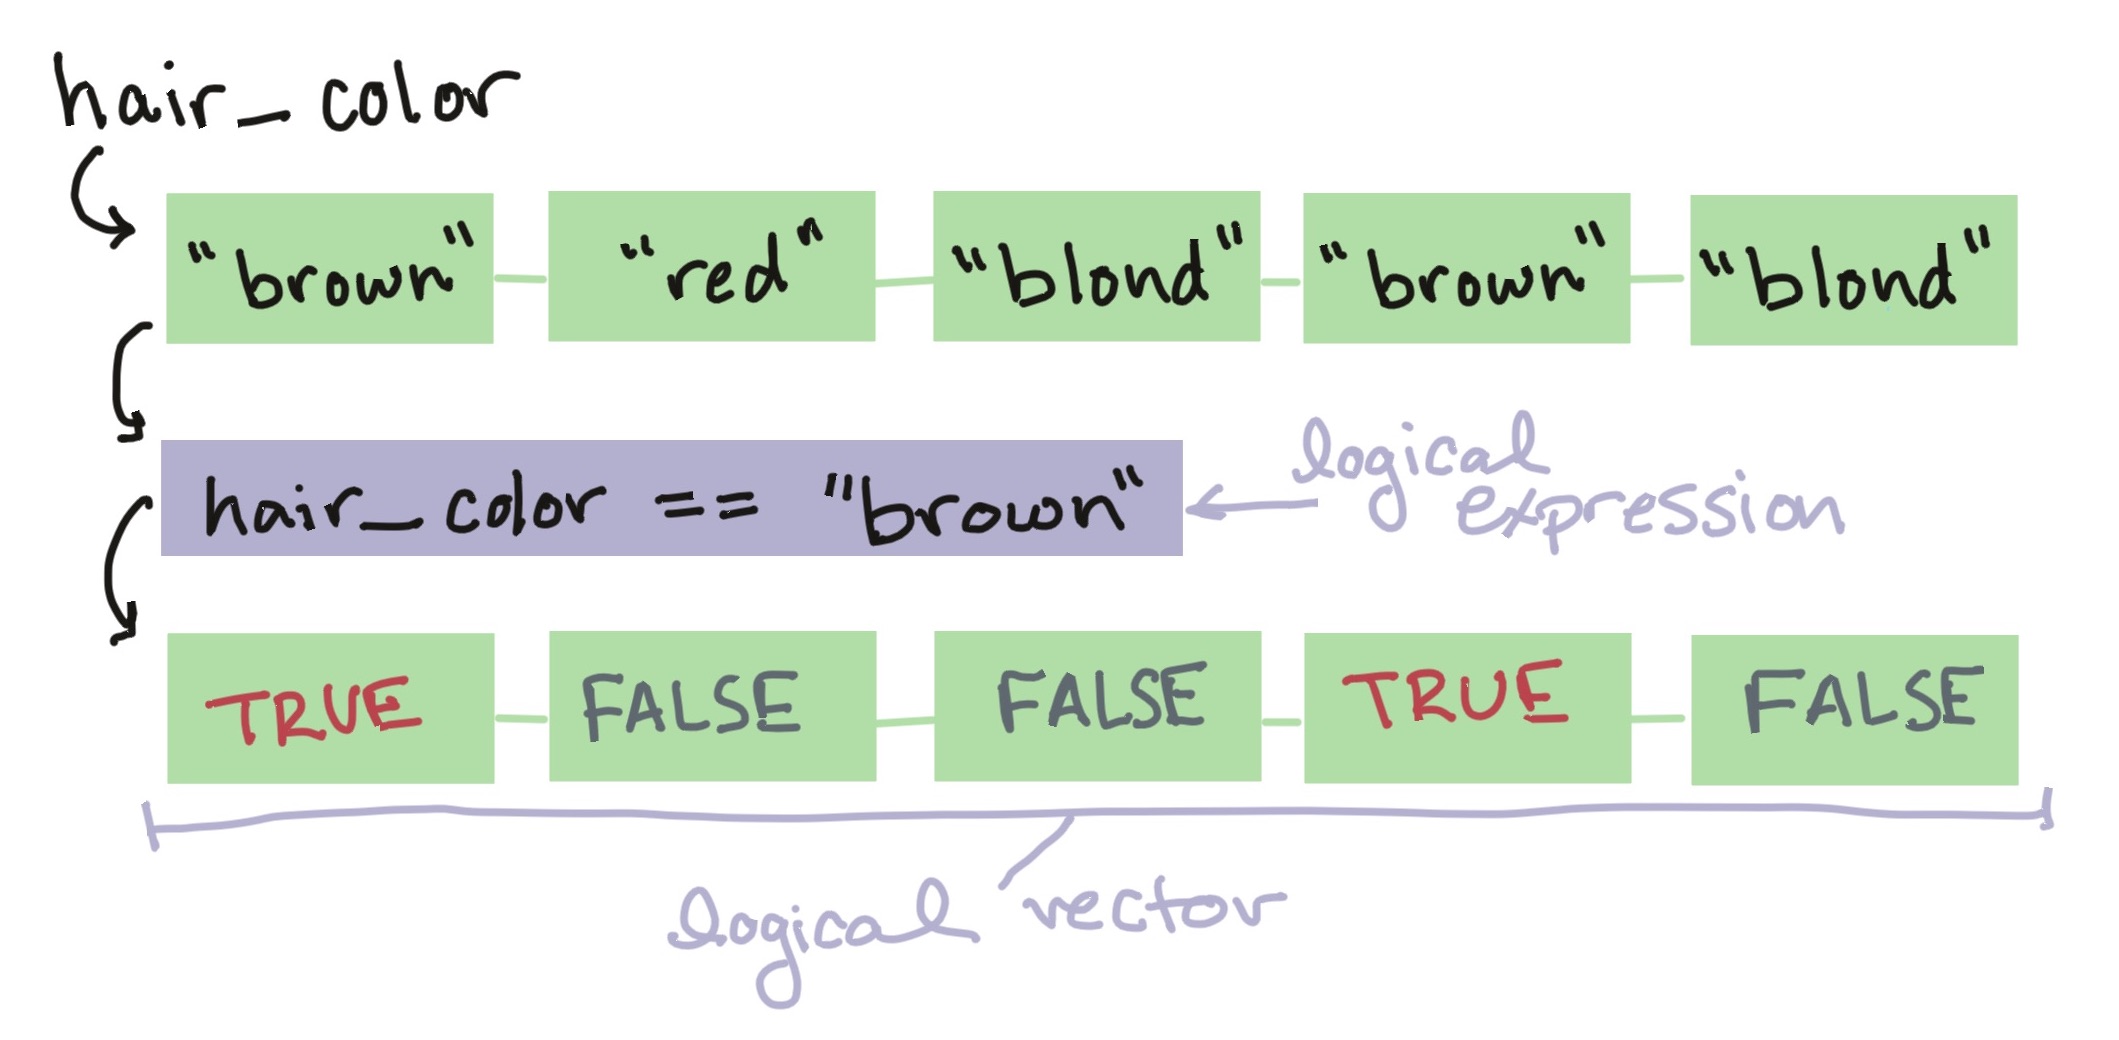 hair_color
"brown" "red" "blond" "brown" "blond"
hair_color == "brown"
logical
expression
TRUE FALSE FALSE TRUE FALSE
logical vector